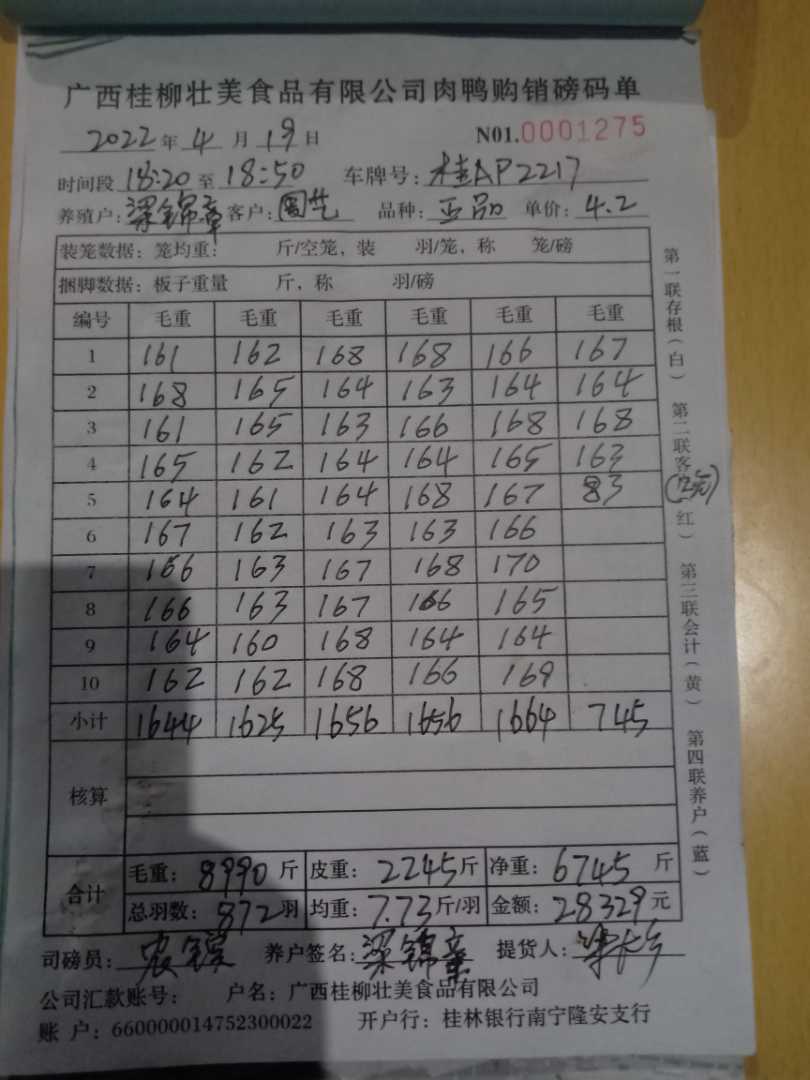 广西桂柳壮美食品有限公司肉鸭购销磅码单
2022年4月19日 N01.0001275
时间段18:20至18:50 车牌号:桂AP2217
养殖户:梁锦章 客户: 品种: 单价:4.2
装笼数据:笼均重: 斤/空笼,装 羽/笼,称 笼/磅
捆脚数据:板子重量 斤,称 羽/磅
编号 毛重 毛重 毛重 毛重 毛重 毛重
1 161 162 168 168 166 167
2 168 165 164 163 164 164
3 161 165 163 166 168 168
4 165 162 164 164 165 163
5 164 161 164 168 167 83
6 167 162 163 163 166
7 166 163 167 168 170
8 166 163 167 166 165
9 164 160 168 164 164
10 162 162 168 166 169
小计 1644 1625 1656 1656 1664 745
核算
合计 毛重:8990斤 皮重:2245斤 净重:6745斤
总羽数:872羽 均重:7.73斤/羽 金额:28329元
司磅员: 养户签名:梁锦章 提货人:
公司汇款账号: 户名:广西桂柳壮美食品有限公司
账 户:660000014752300022 开户行:桂林银行南宁隆安支行
第一联存根(白) 第二联客 红) 第三联会计(黄) 第四联养户(蓝)